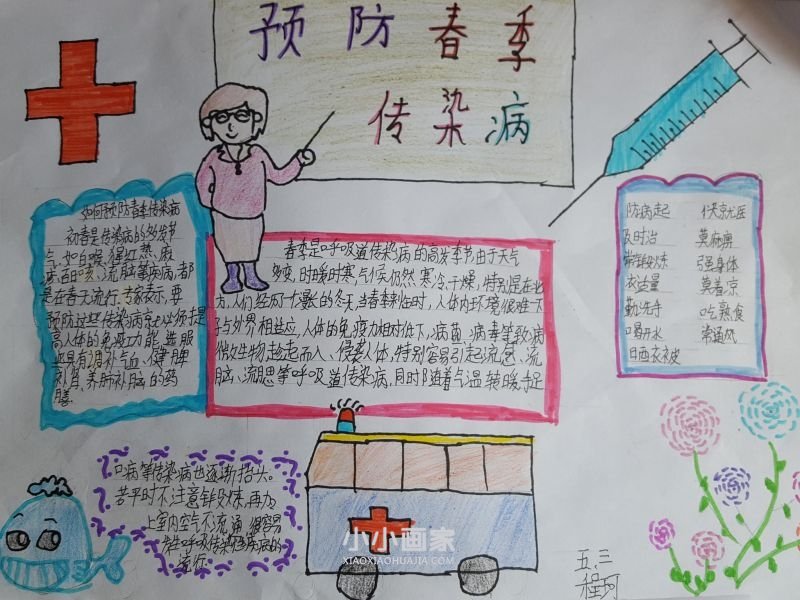 预防春季
传染病
如何预防春季传染病
初春是传染病的多发节
气，如白喉、猩红热、麻
疹、百日咳、流脑等疾病，都
是在春天流行。专家表示，要
预防这些传染病就必须提
高人体的免疫功能，选服
些具有调补气血、健脾
补肾、养肺补脑的药
膳。
春季是呼吸道传染病的高发季节。由于天气
多变，时暖时寒，气候仍然寒冷、干燥，特别是在北
方，人们经历了漫长的冬天，当春季到临时，人体内环境很难下
子与外界相适应，人体的免疫力相对低下，病菌、病毒等致病
微生物趁趁而入、侵袭人体，特别容易引起流感、流
脑、流腮等呼吸道传染病，同时随着气温转暖，手足
口病等传染病也逐渐抬头。
若平时不注意锻炼，再加
上室内空气不流通，很容易
发生呼吸传染性疾病的
流行。
防病起 伏就医
及时治 莫麻痹
常锻炼 强身体
衣适量 莫着凉
勤洗手 吃熟食
喝开水 常通风
日晒衣被
五、三
程珂
小小画家
XIAOXIAOHUAJIA.COM